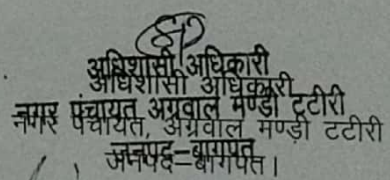 अधिशासी अधिकारी
अधिशासी अधिकारी
नगर पंचायत अग्रवाल मण्डी टटीरी
नगर पंचायत, अग्रवाल मण्ड़ी टटीरी
जनपद–बागपत
जनपद–बागपत।